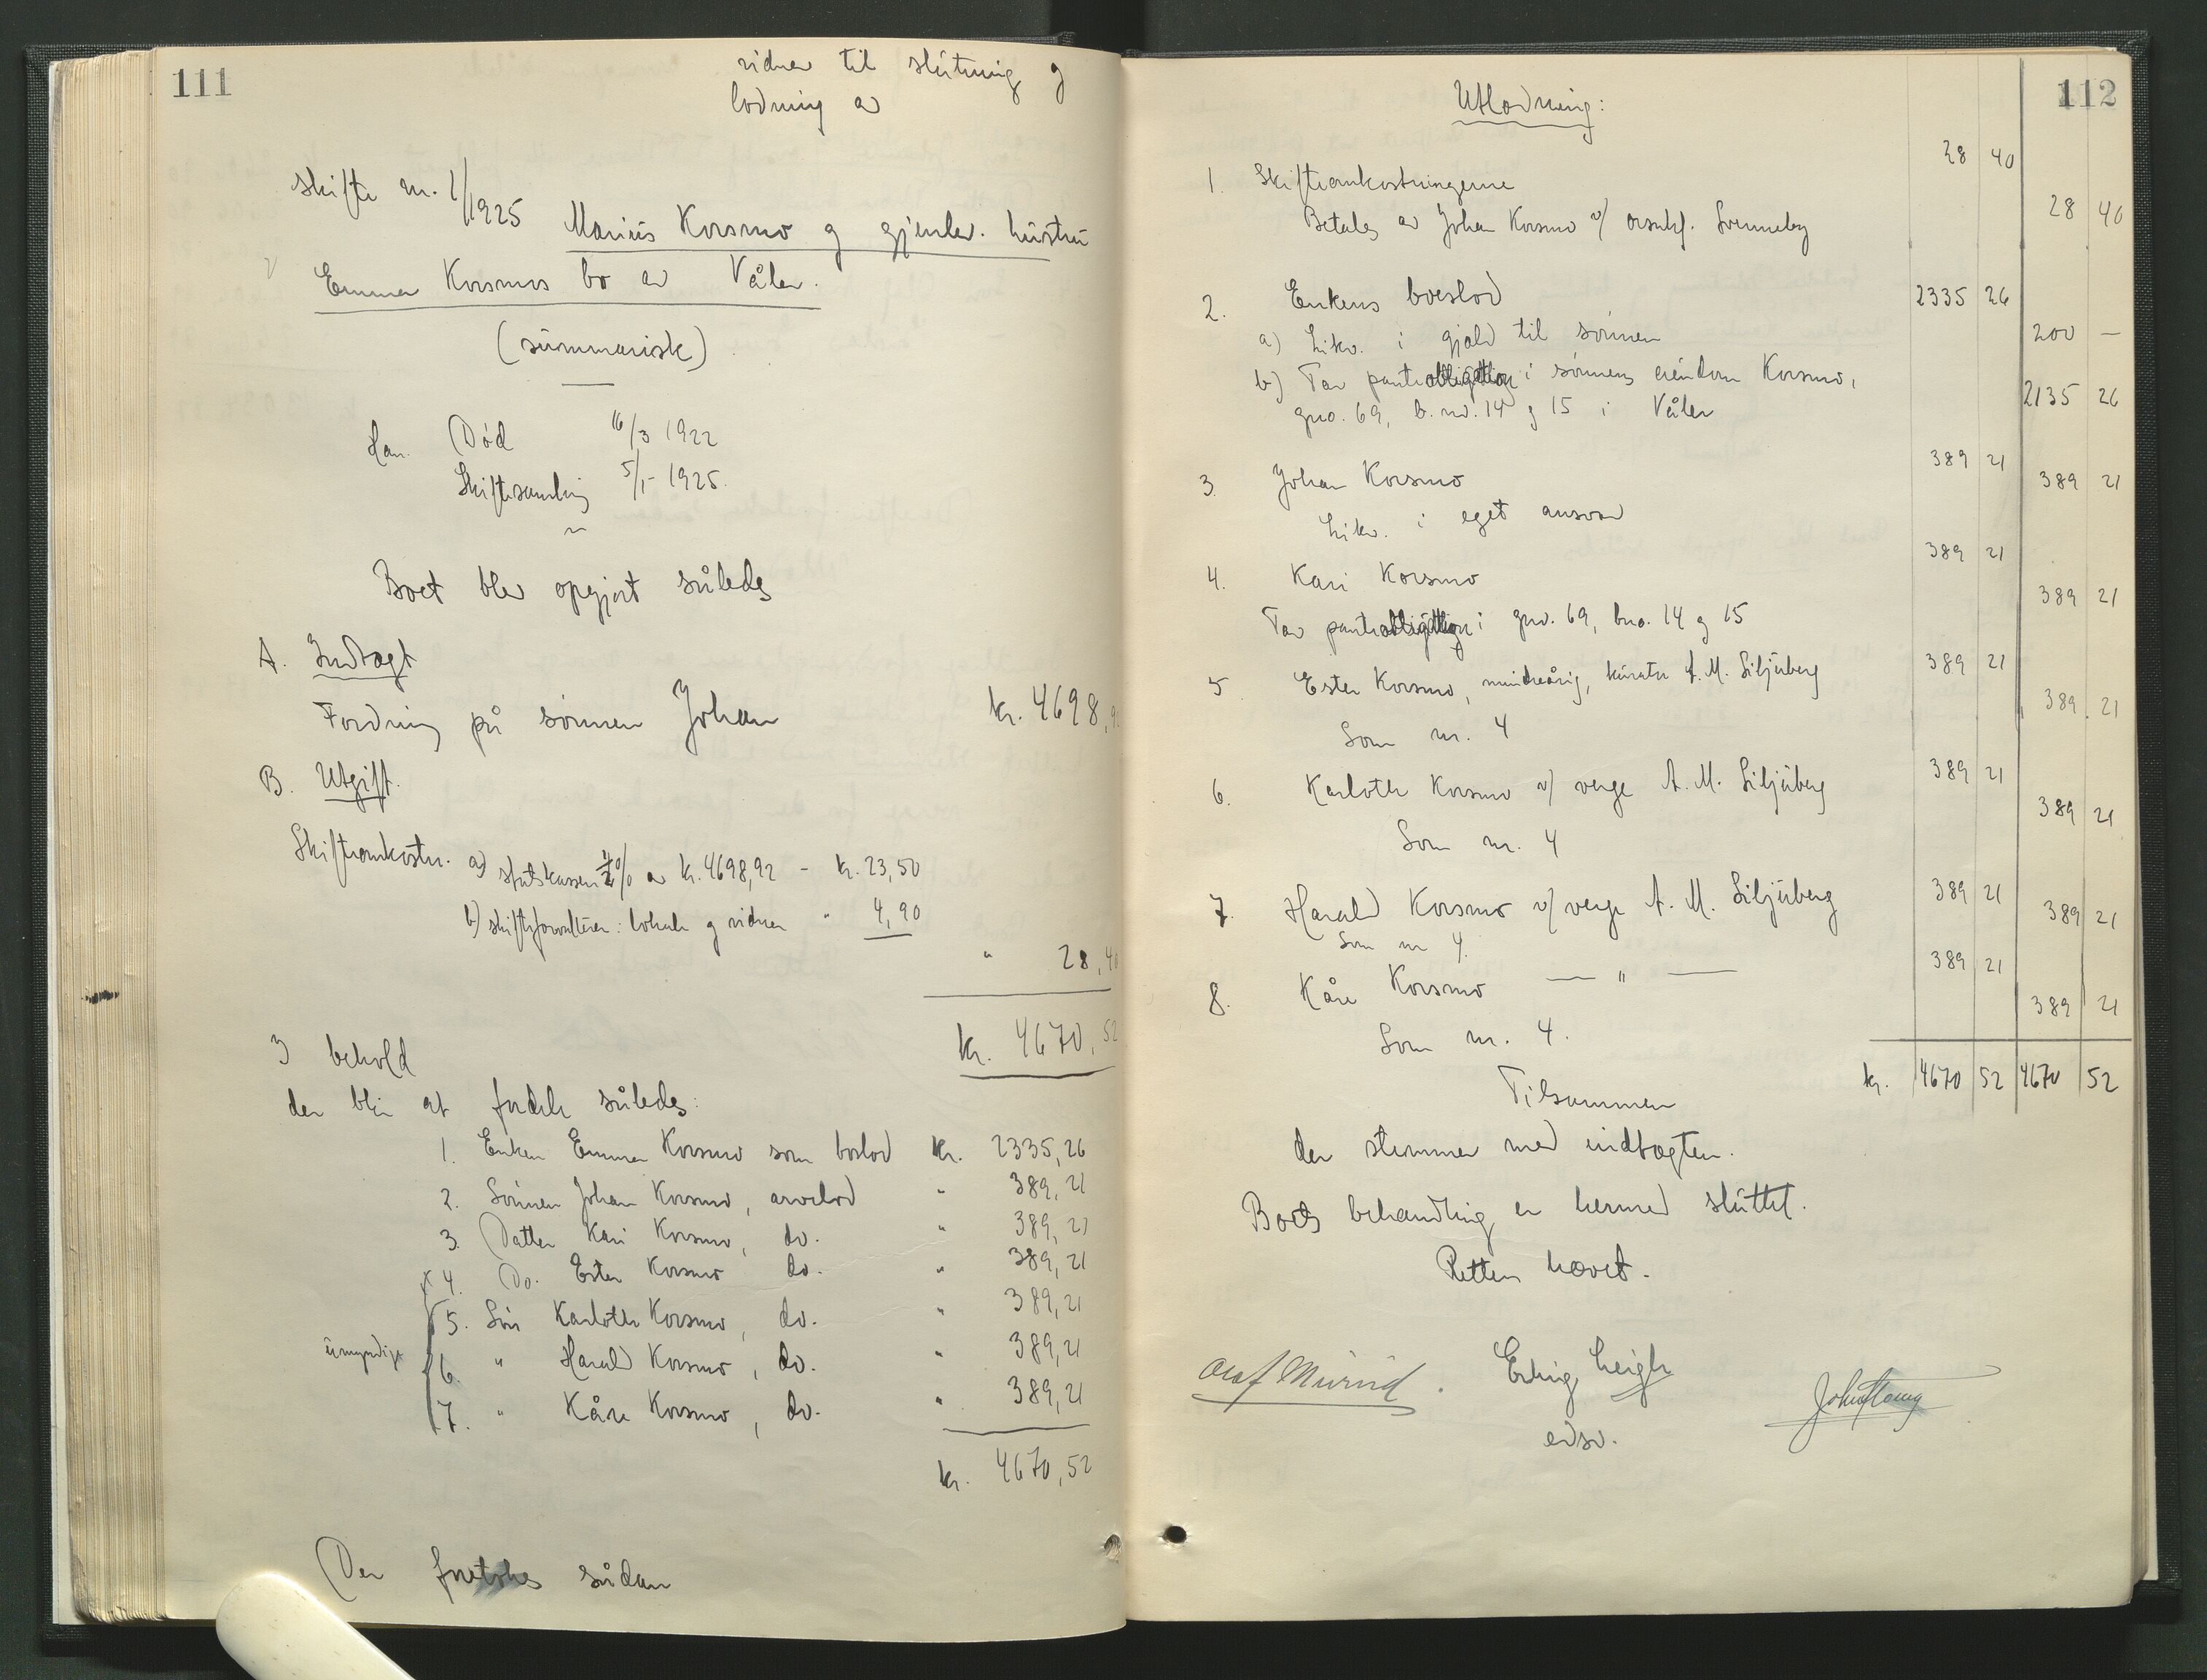 111
vidner til slutning og
lodning av
Skifte nr. 1/1925 Marius Korsmo og gjenlev. hustru
Emma Korsmos bo av Våler.
(summarisk)
Han Død 16/3 1922
Skiftesamling 5/1- 1925.
Boet blev opgjort således
A. Indtægt
Fordring på sønnen Johan kr. 4698,92
B. Utgift.
Skifteomkostn. a) statskassen ½% av kr. 4698,92 - kr. 23,50
b) skifteforvalteren: lokale og vidner " 4,90
" 28,40
I behold kr. 4670,52
der blir at fordele således:
1. Enken Emma Korsmo som boslod kr. 2335,26
2. Sønnen Johan Korsmo, arvelod " 389,21
3. Datter Kari Korsmo, do. " 389,21
4. Do. Ester Korsmo do. " 389,21
5. Søn Karloth Korsmo, do. " 389,21
umyndige 6. " Harald Korsmo, do. " 389,21
7. " Kåre Korsmo, do. " 389,21
kr. 4670,52
Der foretokes sådan
112
Utlodning:
1. Skifteomkostningerne 28 40
Betales av Johan Korsmo v/ Svenneby 28 40
2. Enkens boeslod 2335 26
a) Likv. i gjæld til sønnen 200 —
b) Tar panteobligation i sønnens eiendom Korsmo,
gno. 69, b. no. 14 og 15 i Våler 2135 26
3. Johan Korsmo 389 21
Likv. i eget ansvar 389 21
4. Kari Korsmo 389 21
Tar panteobligation i gno. 69, bno. 14 og 15 389 21
5. Ester Korsmo, mindreårig, kurator A. M. Siljuberg 389 21
Som nr. 4 389 21
6. Karloth Korsmo v/ verge A. M. Siljuberg 389 21
Som nr. 4 389 21
7. Harald Korsmo v/ verge A. M. Siljuberg 389 21
Som nr 4. 389 21
8. Kåre Korsmo — " — 389 21
Som nr. 4. 389 21
Tilsammen kr. 4670 52 4670 52
der stemmer med indtægten.
Boets behandling er hermed sluttet.
Retten hævet.
Olaf Erling Leigh
edsv.